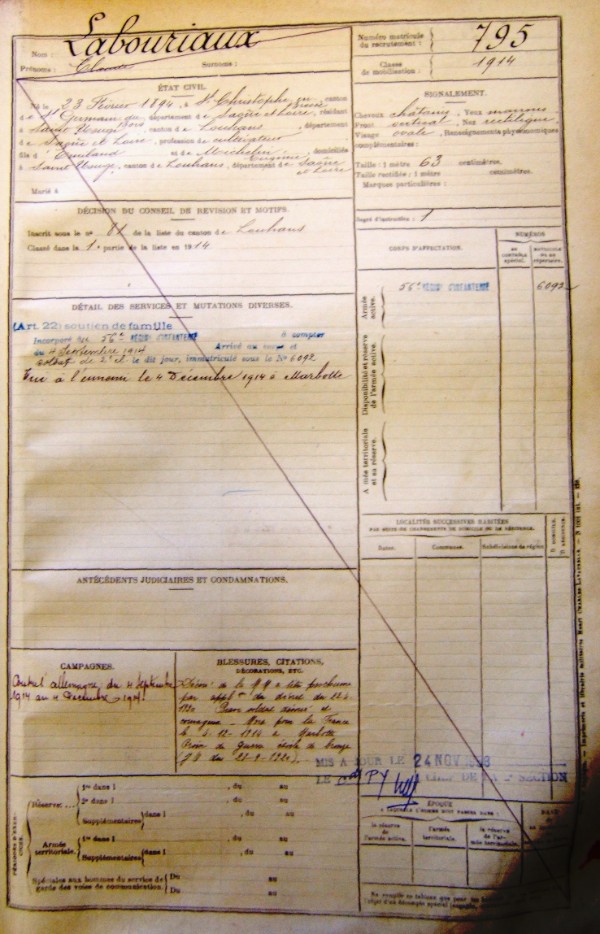 Nom : Labouriaux
Prénoms : Claude Surnome :
Numéro matricule du recrutement : 795
Classe de mobilisation : 1914
ÉTAT CIVIL.
Né le 23 Février 1894, à St Christophe en Bresse, canton
de St Germain du Bois, département de Saône et Loire, résidant
à Saint Usuge, canton de Louhans, département
de Saône et Loire, profession de cultivateur
fils d' Emiland et de Michelin Eugénie, domiciliés
à Saint Usuge, canton de Louhans, département de Saône et Loire
Marié à
SIGNALEMENT.
Cheveux châtains, Yeux marrons
Front vertical, Nez rectiligne
Visage ovale, Renseignements physionomiques
complémentaires :
Taille : 1 mètre 63 centimètres.
Taille rectifiée : 1 mètre centimètres.
Marques particulières :
Degré d'instruction : 1
DÉCISION DU CONSEIL DE REVISION ET MOTIFS.
Inscrit sous le n° 81 de la liste du canton de Louhans
Classé dans la 1e partie de la liste en 1914
CORPS D'AFFECTATION.
NUMÉROS
AU CONTRÔLE spécial.
MATRICULE OU AU répertoire.
Armée active.
56e RÉGIMENT D'INFANTERIE
6092
Disponibilité et réserve de l'armée active.
Armée territoriale et sa réserve.
DÉTAIL DES SERVICES ET MUTATIONS DIVERSES.
(Art. 22) soutien de famille
Incorporé au 56e RÉGIMENT D'INFANTERIE à compter
du 4 Septembre 1914 Arrivé au corps et
soldat de 2e cl. le dit jour, immatriculé sous le No 6092
Tué à l'ennemi le 4 Décembre 1914 à Marbotte
LOCALITÉS SUCCESSIVES HABITÉES
PAR SUITE DE CHANGEMENTS DE DOMICILE OU DE RÉSIDENCE.
Dates.
Communes.
Subdivisions de région
D. DOMICILE.
R. RÉSIDENCE.
ANTÉCÉDENTS JUDICIAIRES ET CONDAMNATIONS.
CAMPAGNES.
Contre l'allemagne du 4 Septembre
1914 au 4 Décembre 1914
BLESSURES, CITATIONS,
DÉCORATIONS, ETC.
de la à titre posthume
par du décret du
1920 Brave soldat dévoué et
courageux - Mort pour la France
le 4-12-1914 à Marbotte
Croix de Guerre étoile de bronze
MIS A JOUR LE 24 NOV
LE Cdt PY CHEF DE LA 2e SECTION
PÉRIODES D'EXERCICES.
Réserve
1re dans l , du au
2e dans l , du au
Supplémentaires dans l , du au
Armée territoriale.
1re dans l , du au
Supplémentaires dans l , du au
Spéciales aux hommes du service de garde des voies de communication.
Du au
Du au
ÉPOQUE
la réserve de l'armée active.
l'armée territoriale.
la réserve de l'armée territoriale.